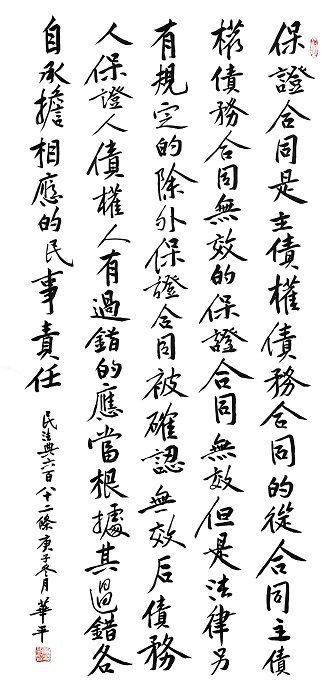 保證合同是主債權債務合同的從合同主債
權債務合同無效的保證合同無效但是法律另
有規定的除外保證合同被確認無效后債務
人保證人債權人有過錯的應當根據其過錯各
自承擔相應的民事責任
民法典六百八十二條庚子冬月華平